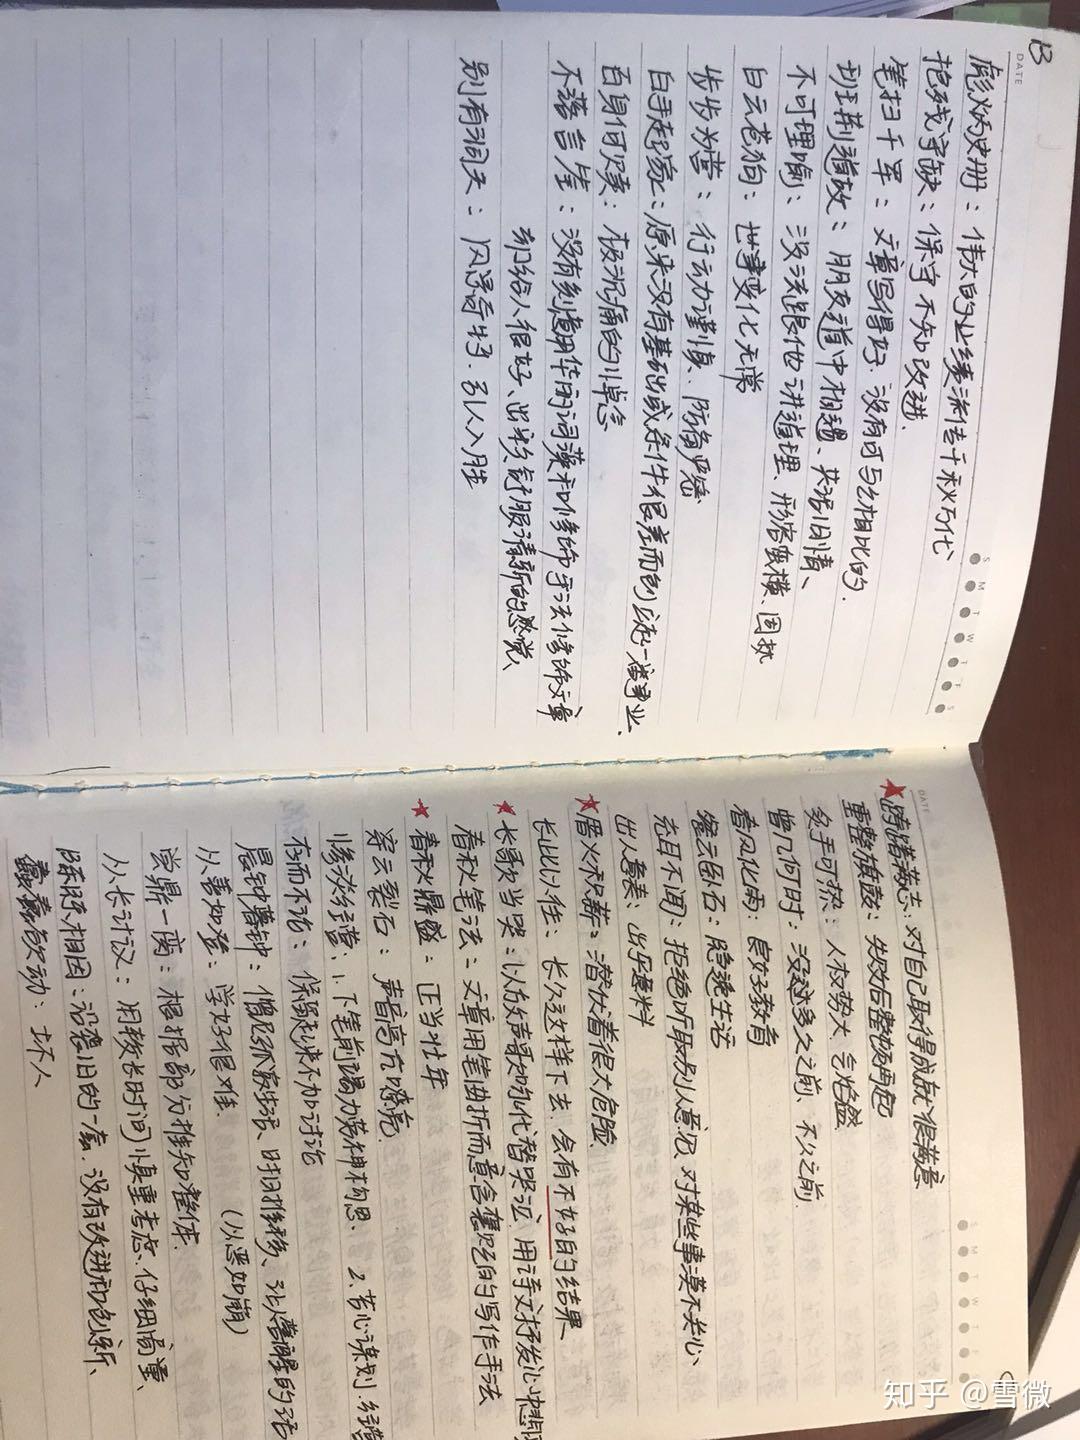 13
DATE
S M T W T F S
彪炳史册：伟大的业绩流传千秋万代
抱残守缺：保守不知改进.
笔扫千军：文章写得好.没有可与之相比的.
班荆道故：朋友道中相遇、共话旧情、
不可理喻：没法跟他讲道理、形容蛮横、固执
白云苍狗：世事变化无常
步步为营：行动谨慎、防备严密
白手起家：原来没有基础或条件很差而创立起一番事业、
百身何赎：极沉痛的悼念
不落言筌：没有刻意用华丽词藻和修饰手法修饰文章
却给人很好、出尘舒服清新的感觉、
别有洞天：风景奇特.引人入胜
DATE
S M T W T F S
★踌躇满志：对自己取得成就很满意
重整旗鼓：失败后整顿再起
炙手可热：人权势大、气焰盛
曾几何时：没过多久之前、不久之前
春风化雨：良好教育
餐云卧石：隐逸生活
充耳不闻：拒绝听取别人意见、对某些事漠不关心、
出人意表：出乎意料
★厝火积薪：潜伏着很大危险
长此以往：长久这样下去.会有不好的结果、
★长歌当哭：以放声歌咏代替哭泣、用诗文抒发心中悲愤
春秋笔法：文章用笔曲折而意含褒贬的写作手法
★春秋鼎盛：正当壮年
穿云裂石：声音高亢嘹亮
惨淡经营：1.下笔前竭力苦神构思、2.苦心谋划.经营
存而不论：保留起来不加讨论
晨钟暮钟：僧尼孤寂生活、时日推移、让人警醒的话
从善如登：学好很难. （从恶如崩）
尝鼎一脔：根据部分推知整体.
从长计议：用较长时间慎重考虑.仔细商量、
陈陈相因：沿袭旧的一套.没有改进和创新、
蠢蠢欲动：坏人
知乎 @雪微